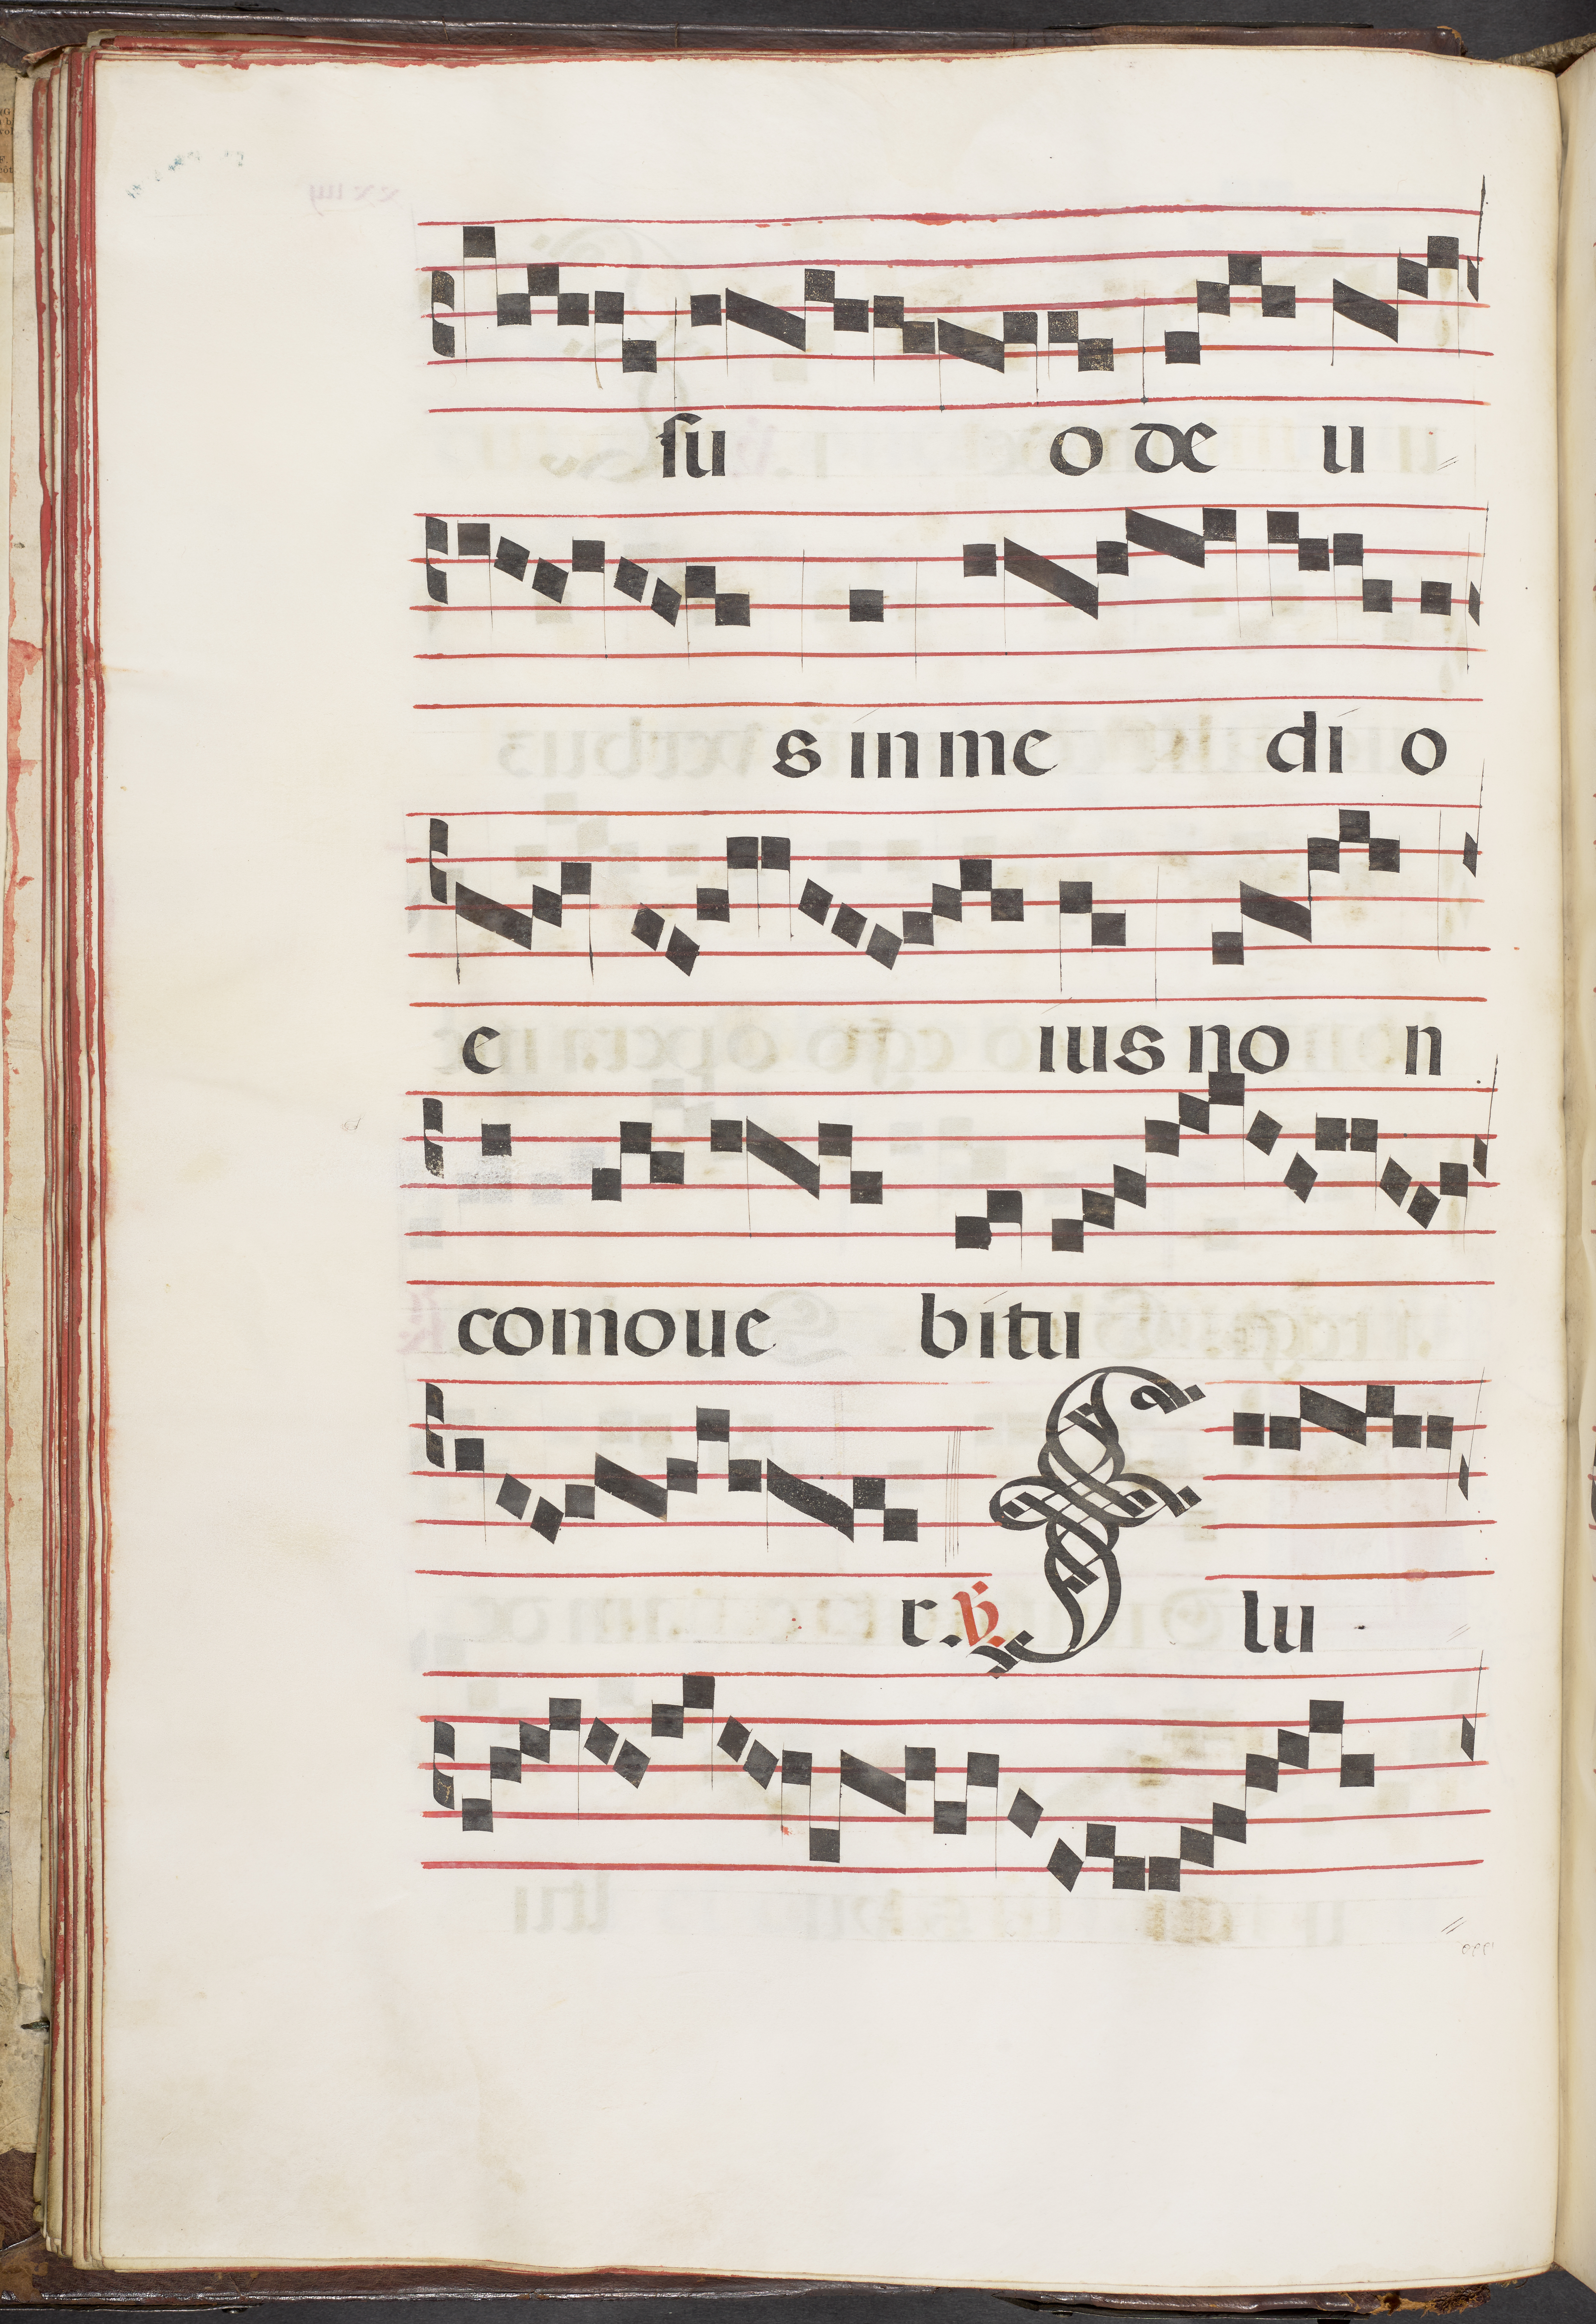 su o de u
s in me di o
e ius no n
comoue bitu
r. ℣. F lu